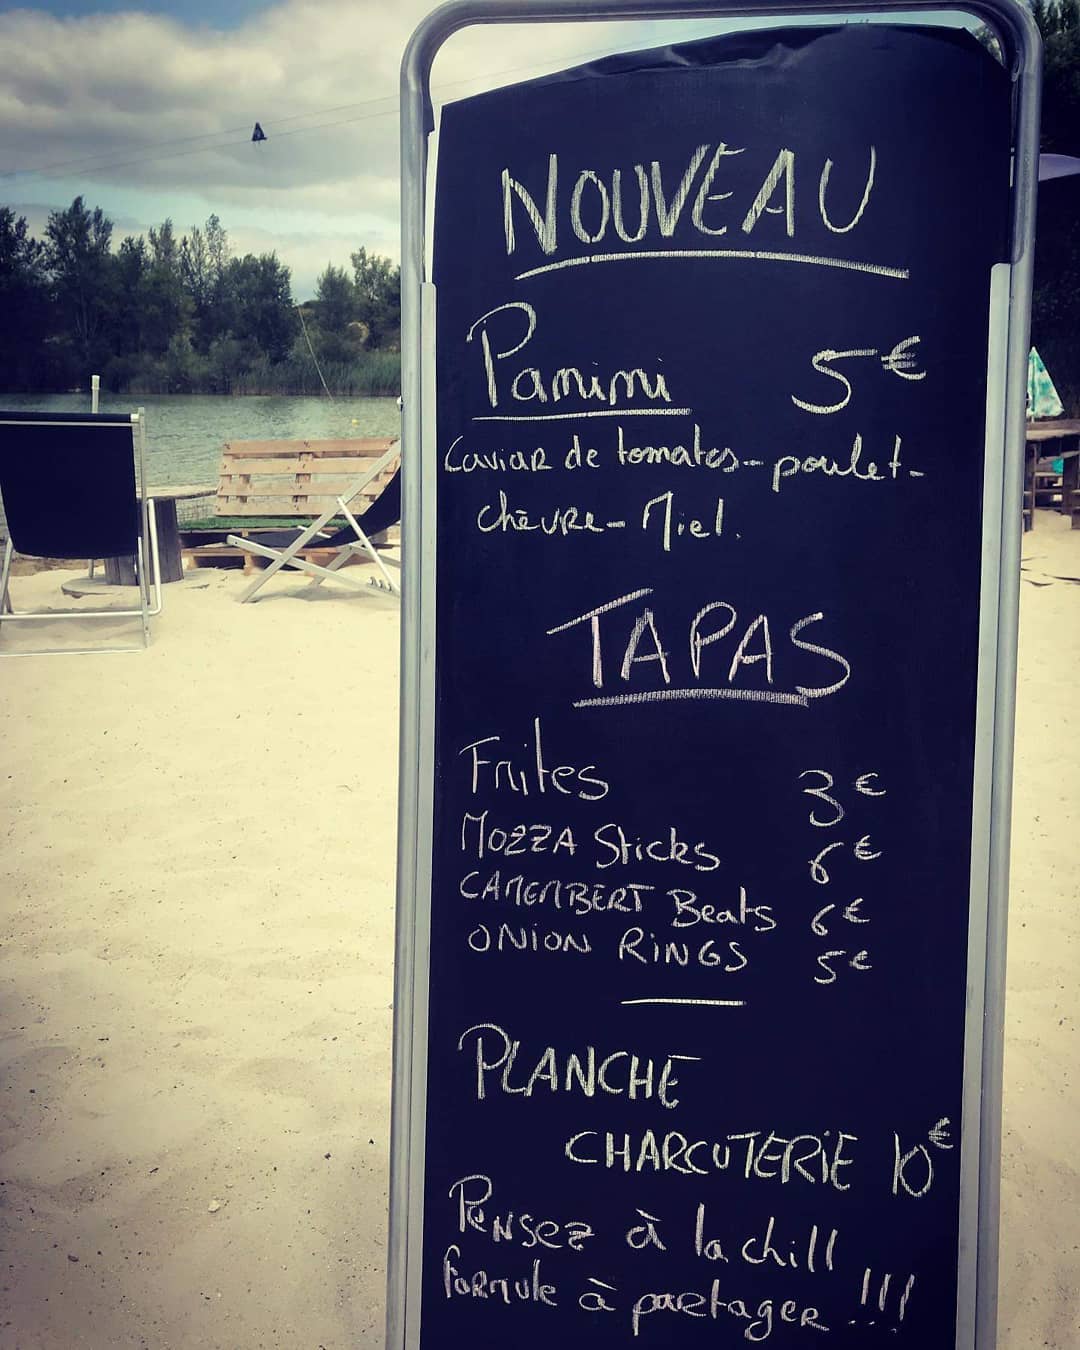 NOUVEAU
Panini 5€
Caviar de tomates - poulet -
chèvre - Miel.
TAPAS
Frites 3€
MOZZA Sticks 6€
CAMEMBERT Beats 6€
ONION RiNGS 5€
PLANCHE
CHARCUTERiE 10€
PENSez à la chill
FORMule à partager !!!